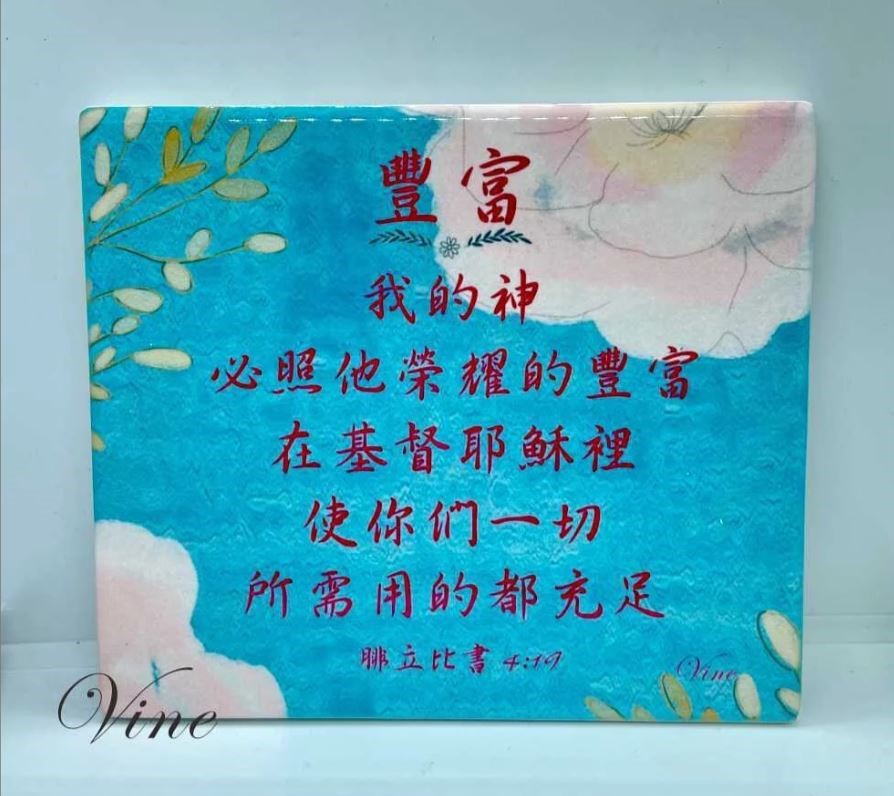 豐富
我的神
必照他榮耀的豐富
在基督耶穌裡
使你們一切
所需用的都充足
腓立比書 4:19
Vine
Vine